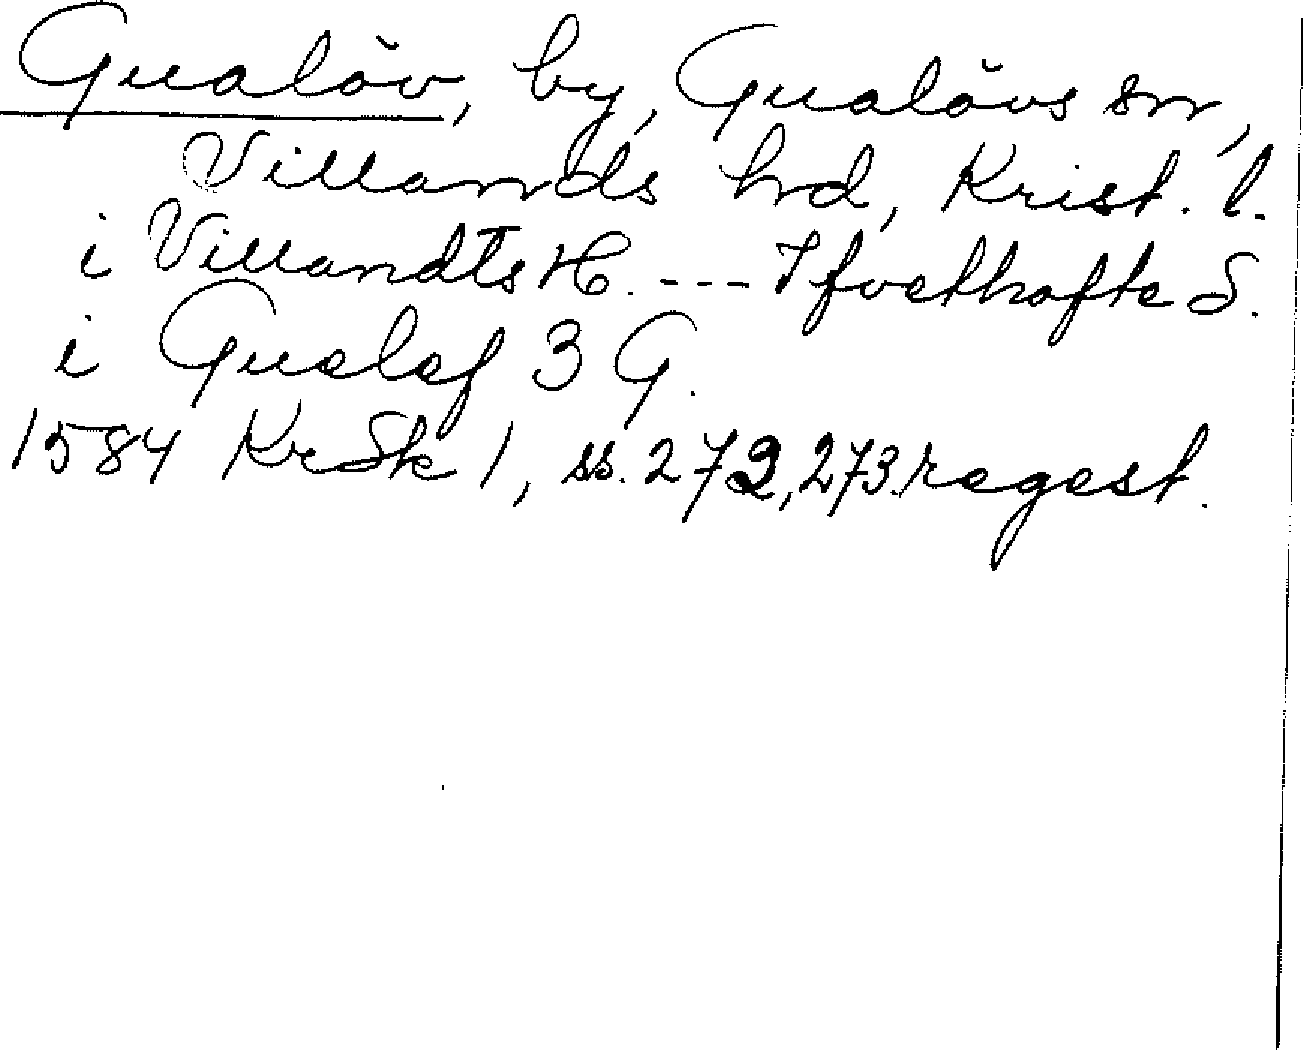 Gualöv, by, Gualövs sn,
Villands hd, Krist. l.
i Villandts H. --- Ifvethofte S.
i Gualef 3 G.
1584 KrSk 1, ss. 272, 273. regest.